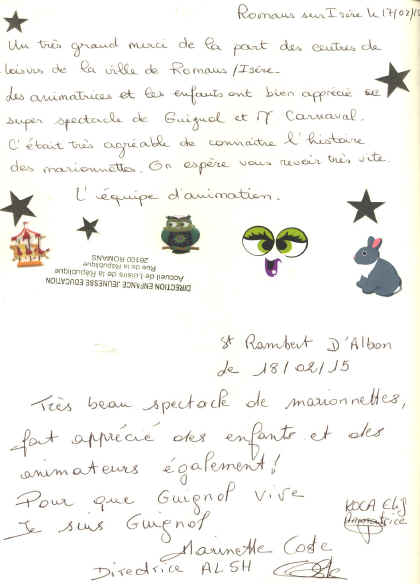 Romans sur Isère le 17/02/15
Un très grand merci de la part des centres de
loisirs de la ville de Romans/Isère.
Les animatrices et les enfants ont bien apprécié ce
super spectacle de Guignol et Mr Carnaval.
C'était très agréable de connaître l'histoire
des marionnettes. On espère vous revoir très vite.
L'équipe d'animation.
DIRECTION ENFANCE JEUNESSE EDUCATION
Accueil de Loisirs de la République
Rue de la République
26100 ROMANS
St Rambert D'Albon
Le 18/02/15
Très beau spectacle de marionnettes,
fort apprécié des enfants et des
animateurs également!
Pour que Guignol vive
Je suis Guignol
Animatrice
Marinette Coste
Directrice ALSH